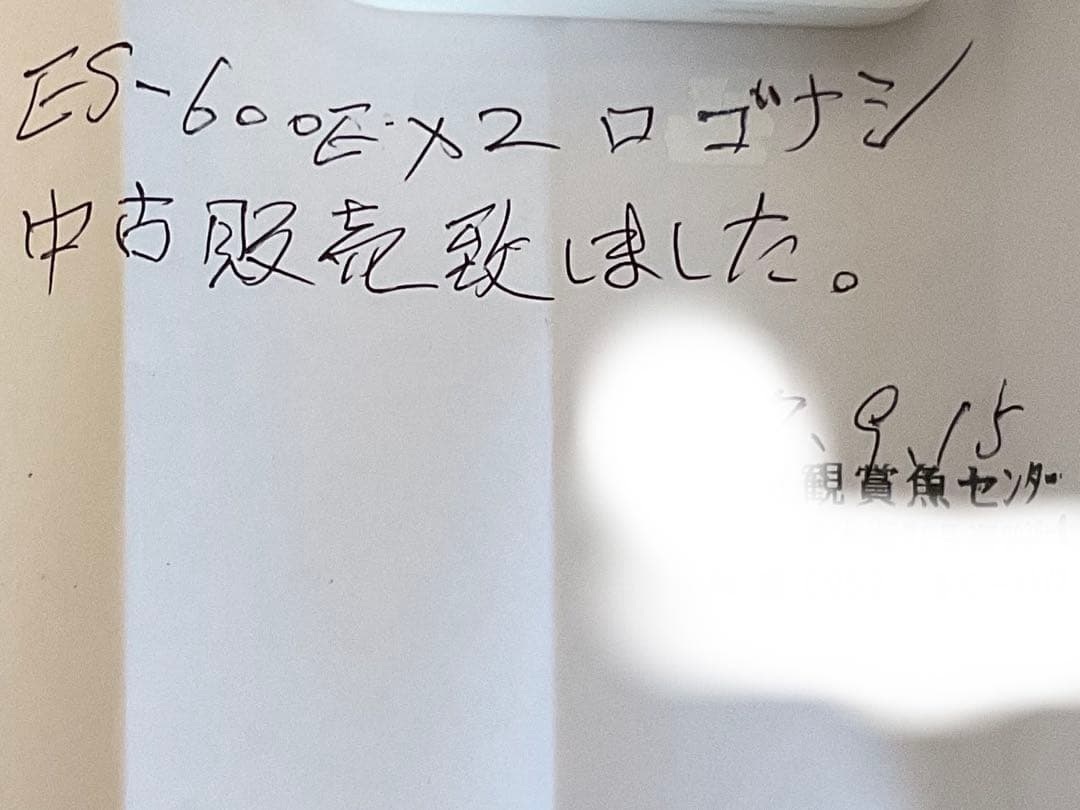 ES-600EX2 ロゴナシ
中古販売致しました。
9.15
観賞魚センター